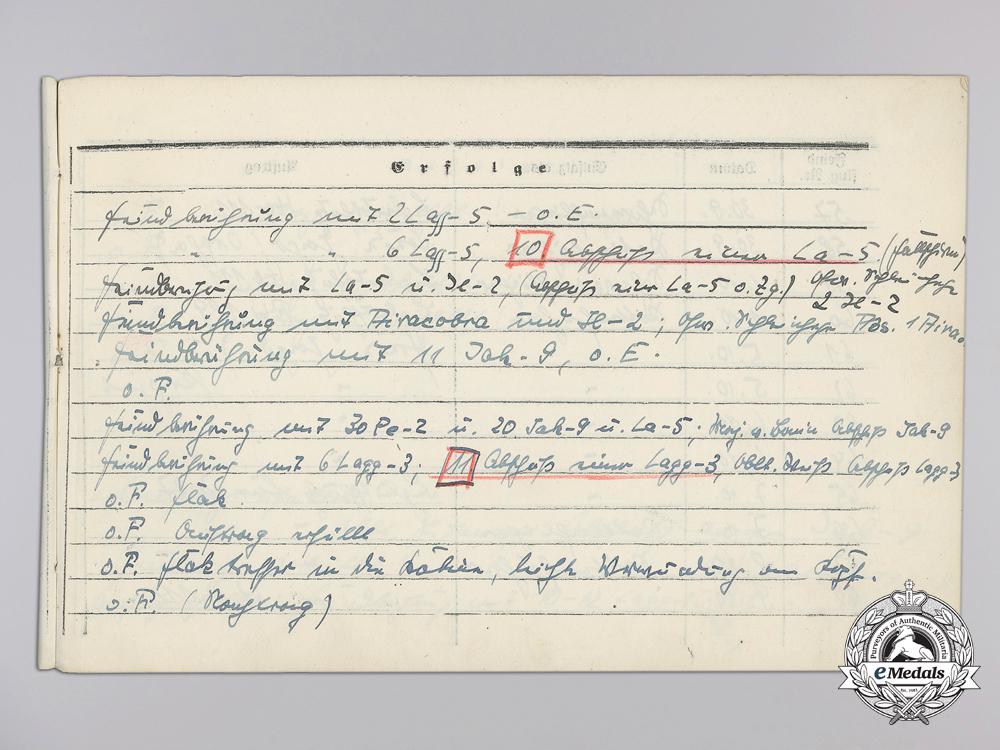 Erfolge
Feindberührung mit 2 Lagg-5. – o.E.
" " 6 Lagg-5, 10 Abschuß einer La-5. (Fallschirm)
Feindberühung mit La-5 u. Il-2, (Abschuß einer La-5 o.Zg.) Ofw. 2 Il-2
Feindberührung mit Airacobra und Il-2; Ofw. Abs. 1 Airac.
Feindberührung mit 11 Jak-9, o.E.
o.F.
Feindberührung mit 30 Pe-2 u. 20 Jak-9 u. La-5; Maj. v. Bonin Abschuß Jak-9
Feindberührung mit 6 Lagg-3; 11 Abschuß einer Lagg-3, Oblt. Abschuß Lagg 3
o.F. Flak.
o.F. Auftrag erfüllt
o.F. Flaktreffer in die Kabine, leichte Verwundung am Kopf.
o.F. ( )
Purveyors of Authentic Militaria
eMedals